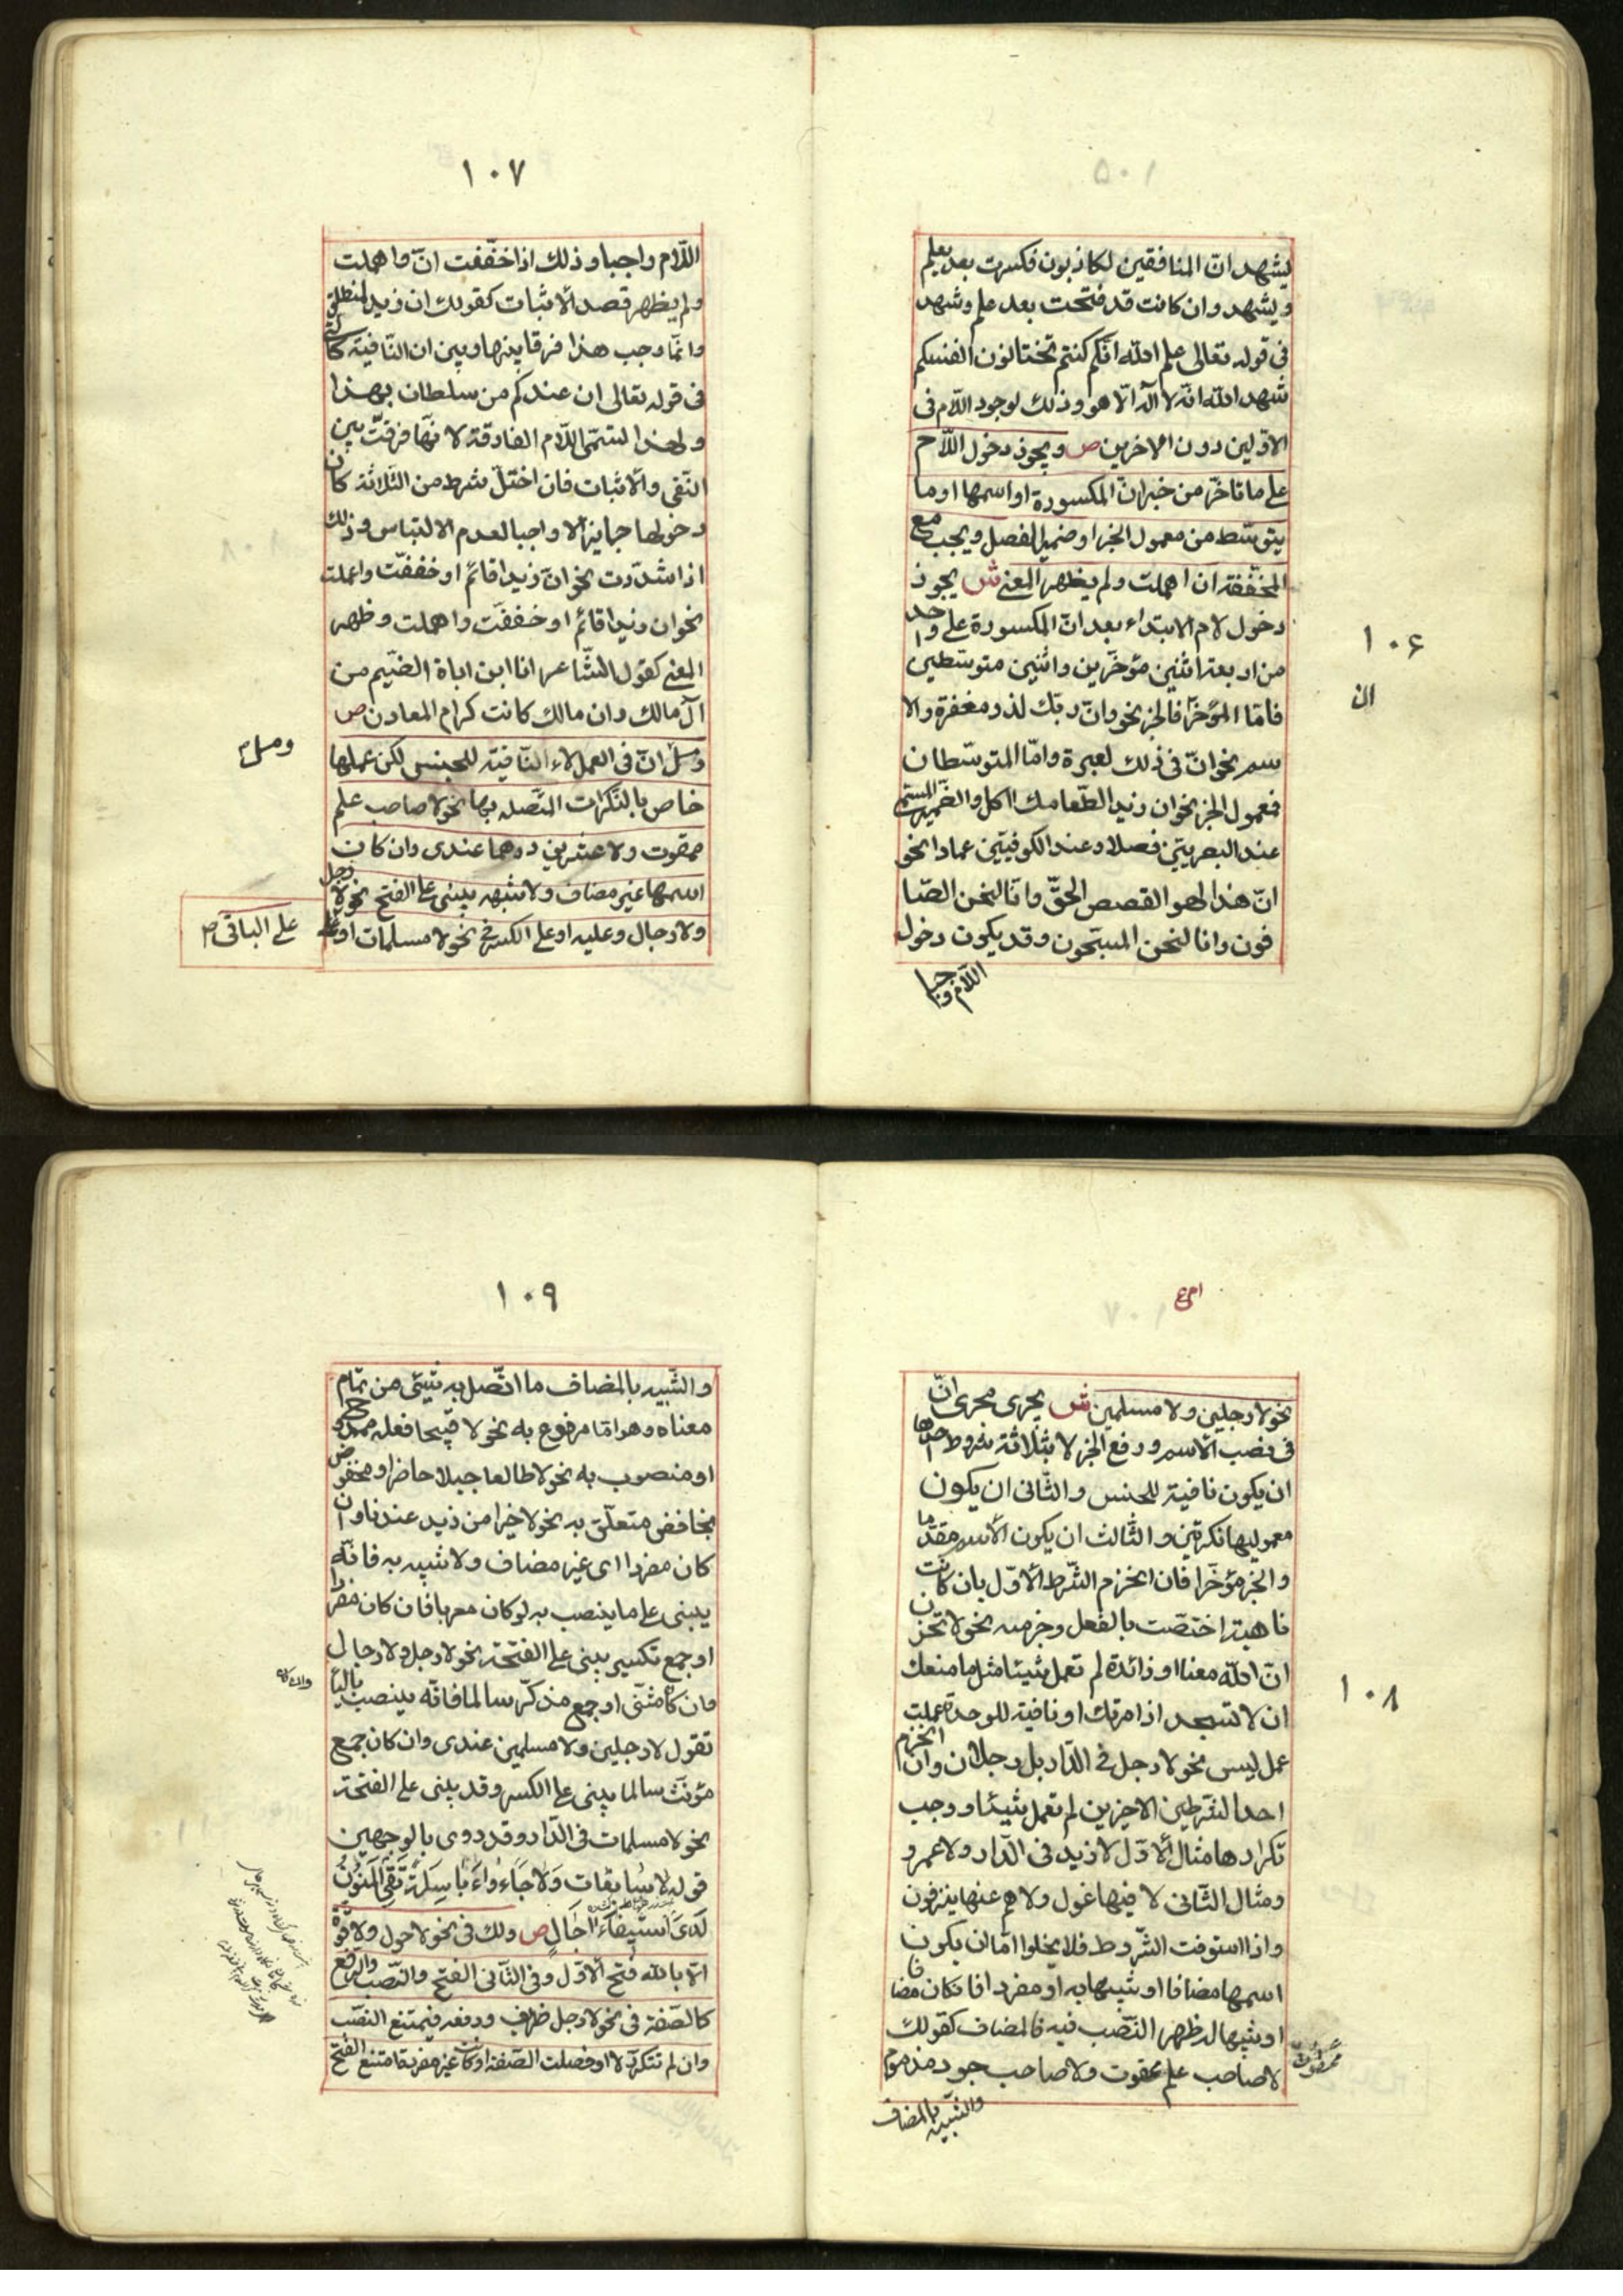 يشهد انّ المنافقين لكاذبون فكسرت بعد يعلم
ويشهد وان كانت قد فتحت بعد علم وشهد
فى قوله تعالى علم الله انّكم كنتم تختانون انفسكم
شهد الله انّه لا اله الّا هو وذلك لوجود اللّام فى
الاوّلين دون الاخرين ص ويجوز دخول اللّام
على ما تاخّر من خبر انّ المكسورة او اسمها او ما
يتوسّط من معمول الخبر او ضمير الفصل ويجب مع
المخفّفة ان اهملت ولم يظهر المعنى ش يجوز
دخول لام الابتداء بعد انّ المكسورة على واحد
من اربعة اثنين مؤخّرين واثنين متوسّطين
فامّا المؤخّر فالخبر نحو وانّ ربّك لذو مغفرة والا
سم نحو انّ فى ذلك لعبرة وامّا المتوسّطان
فمعمول الخبر نحو ان زيدا لطعامك اكل والضّمير المسمّى
عند البصريّين فصلا وعند الكوفيّين عمادا نحو
انّ هذا لهو القصص الحقّ وانّا لنحن الصّا
فون وانا لنحن المسبّحون وقد يكون دخول
اللّام واجبا
١٠۶
ان
١٠٧
اللّام واجبا وذلك اذا خفّفت انّ واهملت
ولم يظهر قصد الاثبات كقولك ان زيد لمنطلق
وانّما وجب هذا فرقا بينها وبين ان النّافية كالّتى
فى قوله تعالى ان عندكم من سلطان بهذا
ولهذا لتسمّى اللّام الفارقة لانّها فرقت بين
النّفى والاثبات فان اختلّ شرط من الثّلاثة كان
دخولها جايزا لا واجبا لعدم الالتباس وذلك
اذا شدّدت نحو انّ زيدا قائم او خففّت واعملت
نحو ان زيدا قائم او خففّت واهملت وظهر
المعنى كقول الشّاعر انا ابن اباة الضّيم من
آل مالك وان مالك كانت كرام المعادن ص
ومثل انّ فى العمل لاء النّافية للجنس لكن عملها
خاص بالنّكرات المتّصله بها نحو لا صاحب علم
ممقوت ولا عشرين درهما عندى وان كان
اسمها غير مضاف ولا شبهه يبنى على الفتح نحو لا رجل
ولا رجال وعليه او على الكسر فى نحو لا مسلمات او على
ومثل
على الباقى م
نحو لا رجلين ولا مسلمين ش يجرى مجرى انّ
فى نصب الاسم ورفع الخبر لا بثلاثة شروط احدها
ان يكون نافية للجنس والثّانى ان يكون
معموليها نكرتين والثّالث ان يكون الاسم مقدّما
والخبر مؤخّرا فان انخزم الشّرط الاوّل بان كانت
ناهية اختصّت بالفعل وجزمته نحو لا تحزن
انّ الله معنا او زائدة لم تعمل شيئا مثل ما منعك
ان لا تسجد اذ امرتك او نافية للوحدة عملت
عمل ليس نحو لا رجل فى الدّار بل رجلان وان انخزم
احد الشّرطين الاخيرين لم تعمل شيئا ووجب
تكرارها مثال الاوّل لا زيد فى الدّار ولا عمرو
ومثال الثّانى لا فيها غول ولا هم عنها ينزفون
واذا استوفت الشّروط فلا يخلوا امّا ان يكون
اسمها مضافا او شبيها به او مفردا فان كان مضافا
او شبيها له ظهر النّصب فيه فالمضاف كقولك
لا صاحب علم ممقوت ولا صاحب جود مذموم
والشّبيه بالمضاف
١٠٨
١٠٩
والشّبيه بالمضاف ما اتّصل به شيئى من تمام
معناه وهو امّا مرفوع به نحو لا قبيحا فعله ممدوح
او منصوب به نحو لا طالعا جبلا حاضر او مخفوض
بخافض متعلّق به نحو لا خيرا من زيد عندنا وان
كان مفردا اى غير مضاف ولا شبيه به فانّه
يبنى على ما ينصب به لو كان معربا فان كان مفردا
او جمع تكسير يبنى على الفتحة نحو لا رجل ولا رجال
وان كان مثنّى او جمع مذكّر سالما فانّه ينصب بالياء
تقول لا رجلين ولا مسلمين عندى وان كان جمع
مؤنّث سالما يبنى على الكسر وقد يبنى على الفتحة
نحو لا مسلمات فى الدّار وقد روى بالوجهين
قوله لا سابغات ولا جاءواء باسلة تقى المنون
لدى استيفاء اجال ص ولك فى نحو لا حول ولا قوّة
الّا بالله فتح الاوّل وفى الثّانى الفتح والنّصب والرّفع
كالصّفة فى نحو لا رجل ظريف ورفعه فيمتنع النصّب
وان لم تتكرّر لا او فصلت الصّفة او كانت غير مفردة امتنع الفتح